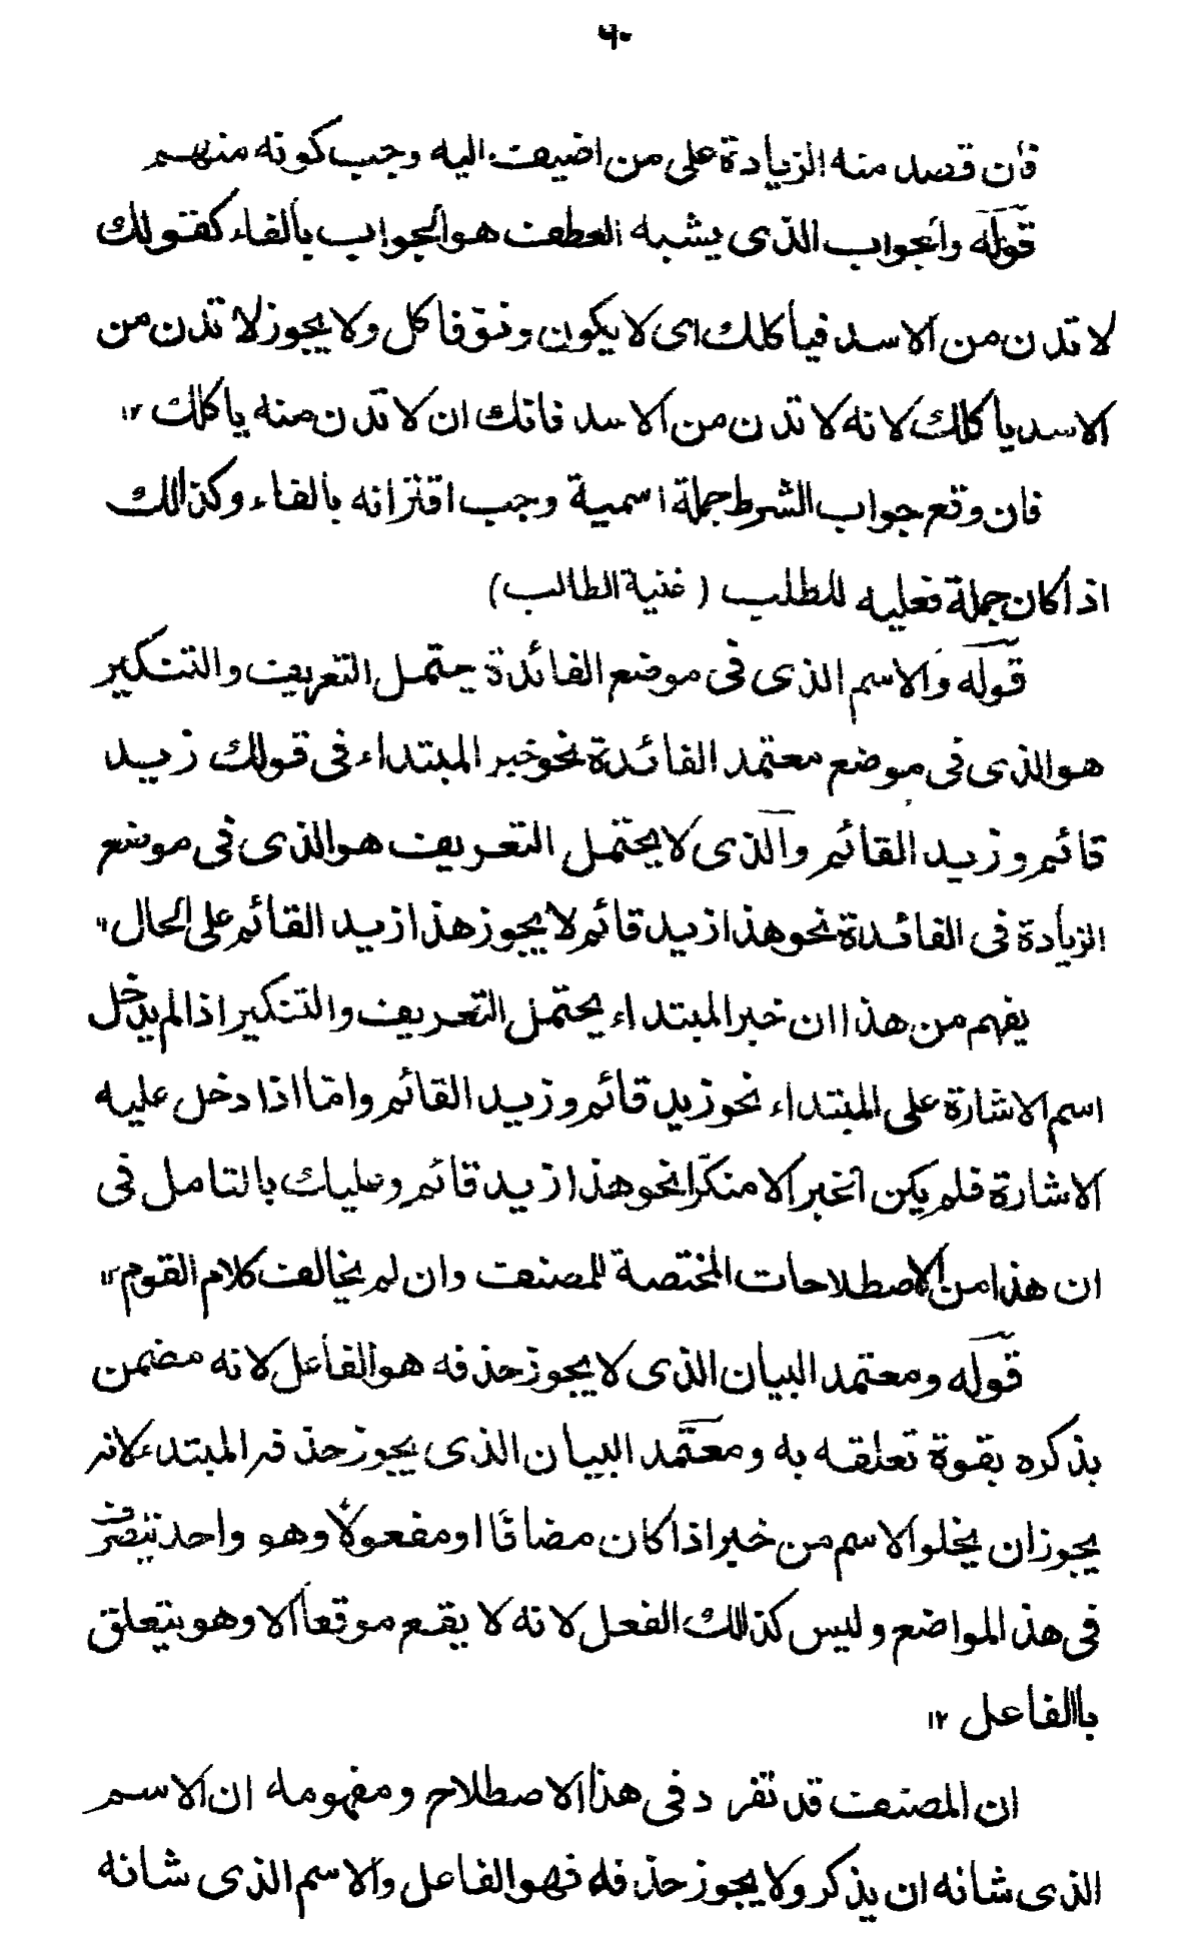 ٦٠
فان قصد منه الزيادة على من اضيف اليه وجب كونه منهم
قوله والجواب الذى يشبه العطف هو الجواب بالفاء كقولك
لا تدن من الاسد فيأكلك اى لا يكون دنو فاكل ولا يجوز لا تدن من
الاسد ياكلك لانه لا تدن من الاسد فانك ان لا تدن منه ياكلك ١٢
فان وقع جواب الشرط جملة اسمية وجب اقترانه بالفاء وكذالك
اذا كان جملة فعليه للطلب (غنية الطالب)
قوله والاسم الذى فى موضع الفائدة يحتمل التعريف والتنكير
هو الذى فى موضع معتمد الفائدة نحو خبر المبتداء فى قولك زيد
قائم وزيد القائم والذى لا يحتمل التعريف هو الذى فى موضع
الزيادة فى الفائدة نحو هذا زيد قائم لا يجوز هذا زيد القائم على الحال ١٢
يفهم من هذا ان خبر المبتداء يحتمل التعريف والتنكير اذا لم يدخل
اسم الاشارة على المبتداء نحو زيد قائم وزيد القائم وامّا اذا دخل عليه
الاشارة فلم يكن الخبر الا منكّرا نحو هذا زيد قائم وعليك بالتامل فى
ان هذا من الاصطلاحات المختصة للمصنف وان لم يخالف كلام القوم ١٢
قوله ومعتمد البيان الذى لا يجوز حذفه هو الفاعل لانه مضمن
بذكره بقوة تعلقه به ومعتمد البيان الذى يجوز حذفه المبتدء لانه
يجوز ان يخلو الاسم من خبر اذا كان مضافا او مفعولا وهو واحد يتصرف
فى هذ المواضع وليس كذلك الفعل لانه لا يقع موقعا الا وهو يتعلق
باالفاعل ١٢
ان المصنف قد تفرد فى هذا الاصطلاح ومفهومه ان الاسم
الذى شانه ان يذكر ولا يجوز حذفه فهو الفاعل والاسم الذى شانه